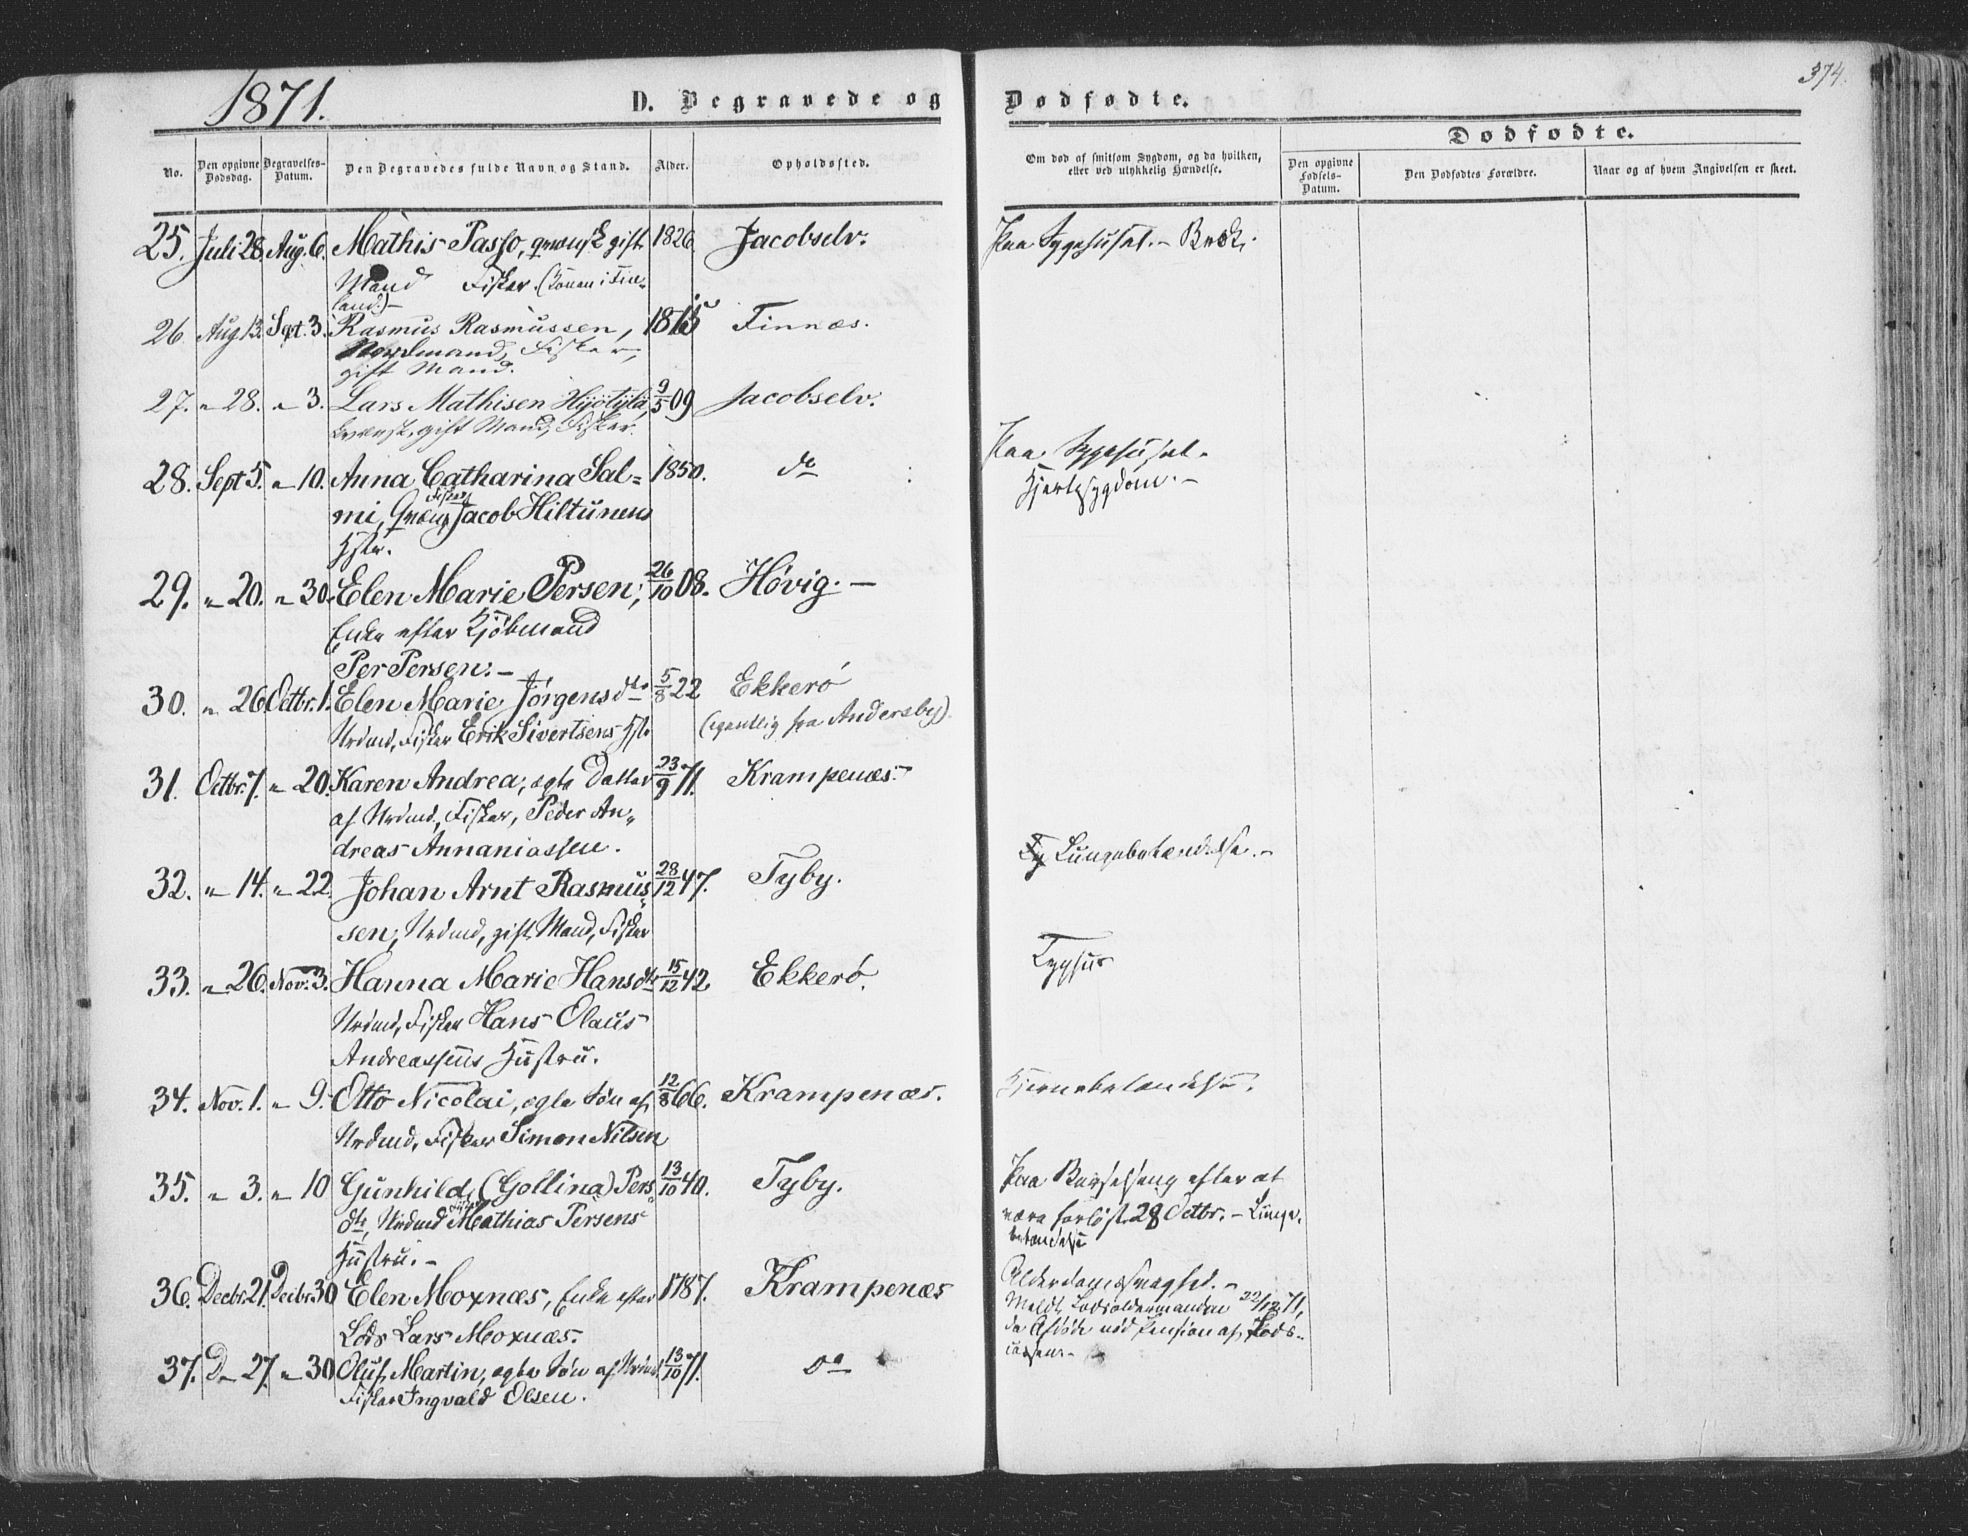 374.
1871.
D. Begravede og Dødfødte.
Dødfødte.
No.
Den opgivne Dødsdag.
Begravelses-Datum.
Den Begravedes fulde Navn og Stand.
Alder.
Opholdssted.
Om død af smitsom Sygdom, og da hvilken, eller ved ulykkelig Hændelse.
Den opgivne Fødsels-Datum.
Den Dødfødtes Forældre.
Naar og af hvem Angivelsen er skeet.
25. Juli 28. Aug. 6. Mathis Passo, qvænsk gift 1826. Jacobselv. Paa Sygehuset.
Mand Fisker. (Konen i Fin-
land.)
26. Aug 13. Sept. 3. Rasmus Rasmussen, 1815 Finnæs.
Nordmand, Fisker,
gift Mand.
27. " 28. " 3. Lars Mathisen Hyötylä, 9/5 09 Jacobselv.
kvænsk, gift Mand, Fisker.
28. Sept 5. " 10. Anna Catharina Sal= 1850. do Paa Sygehuset.
mi, Qvæn, Fisker Jacob Hiltunens Hjertesygdom.
Hstr.
29. " 20. " 30. Elen Marie Persen, 26/10 08. Høvig. —
Enke efter Kjøbmand
Per Persen. —
30. " 26. Octbr. 1. Elen Marie Jörgensdtr 5/8 22 Ekkerö
Nrdmd, Fisker Erik Sivertsens Hstr (egentlig fra Andersby).
31. Octbr. 7. " 20. Karen Andrea, ægte Datter 23/9 71. Krampenæs.
af Nrdmd, Fisker, Peder An-
dreas Annaniassen.
32. " 14. " 22. Johan Arnt Rasmus- 28/12 47. Tyby. Lungebetændelse. —
sen, Nrdmd, gift Mand, Fisker
33. " 26. Nov. 3. Hanna Marie Hansdtr 15/12 42. Ekkerö. Typhus
Nrdmd, Fisker Hans Olaus
Andreassens Hustru.
34. Nov. 1. " 9. Otto Nicolai, ægte Søn af 12/8 66. Krampenæs. Hjernebetændelse.
Nrdmd, Fisker Simon Nilsen
35. " 3. " 10 Gunhild (Gollina) Pers- 13/10 40. Tyby. Paa Barselseng efter at
dtr, Nrdmd Fisker Mathias Persens være forløst 28 Octbr. — Lunge-
Hustru. — betændelse
36. Decbr. 21. Decbr. 30 Elen Moxnæs, Enke efter 1787. Krampenæs Alderdomssvaghed. —
Lods Lars Moxnæs. Meldt Lodsoldermanden 22/12 71,
da Afdøde nød Pension af Lods-
cassen. —
37. D " 27. " 30 Oluf Martin, ægte Søn af Nrdmd 13/10 71. do
Fisker Ingvald Olsen.